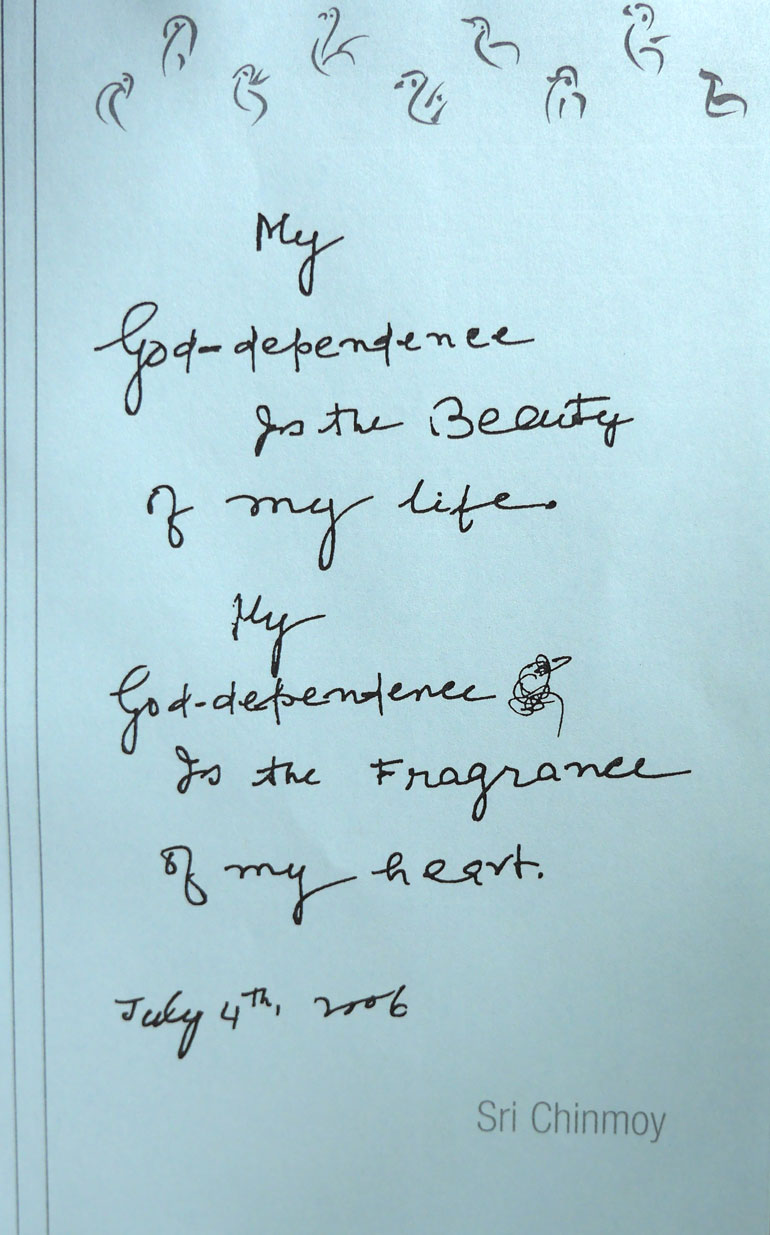 My
God-dependence
Is the Beauty
of my life.
My
God-dependence
Is the Fragrance
of my heart.
July 4th, 2006
Sri Chinmoy